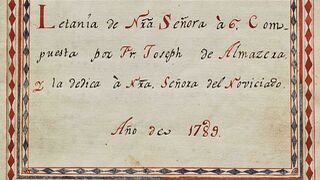 Letanía de Nrã Señora à 6. Com
puesta por Fr. Joseph de Almazera,
y la dedica à Nrã. Señora del Noviciado.
Año de 1789.